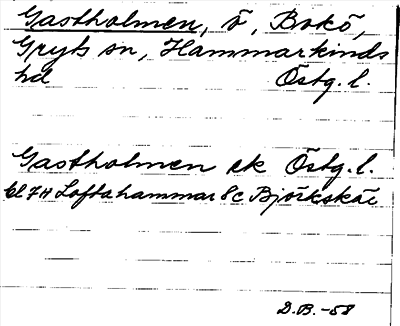 Gastholmen, ö, Bokö,
Gryts sn, Hammarkinds
hd Östg. l.
Gastholmen ek Östg. l.
bl 7H Loftahammar 8c Björkskär
D.B. -58